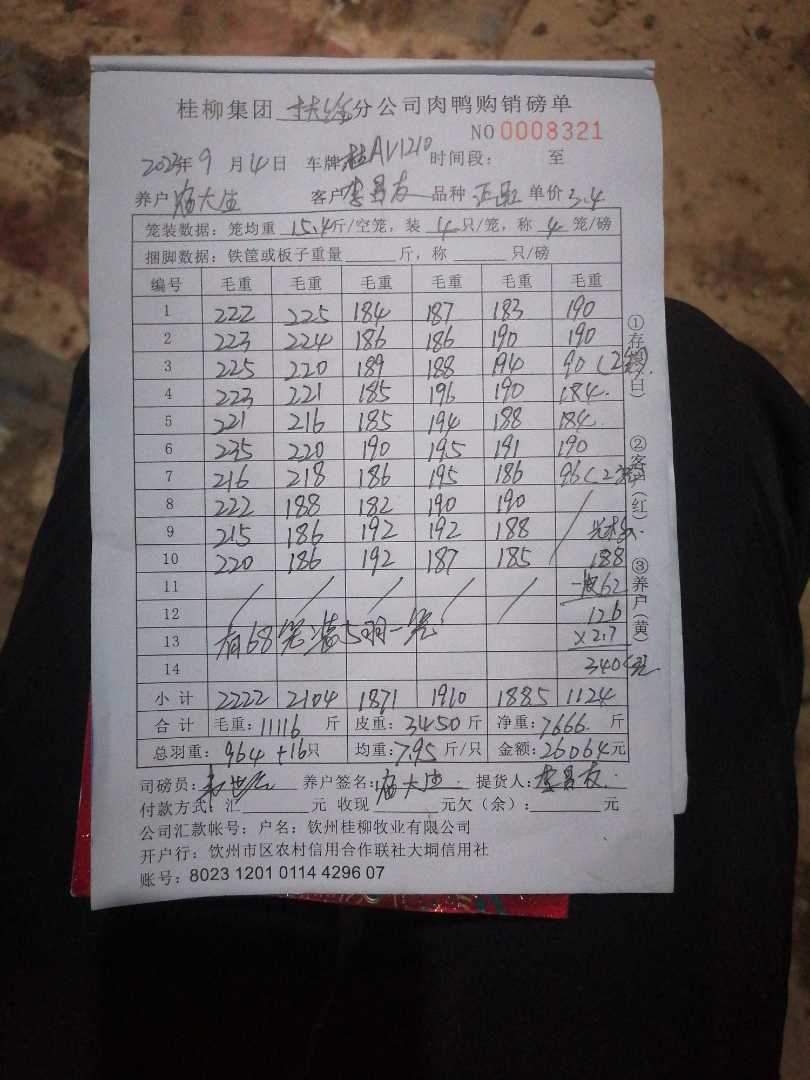 桂柳集团 扶绥 分公司肉鸭购销磅单
NO 0008321
2023年 9 月 4 日 车牌 桂AV1210 时间段: 至
养户 大生 客户 李昌友 品种 单价 3.4
笼装数据: 笼均重 15.4 斤/空笼, 装 4 只/笼, 称 4 笼/磅
捆脚数据: 铁筐或板子重量 斤, 称 只/磅
编号 毛重 毛重 毛重 毛重 毛重 毛重
1 222 225 184 187 183 190
2 223 224 186 186 190 190
3 225 220 189 188 194 90 (2笼)
4 223 221 185 196 190 184.
5 221 216 185 194 188 184.
6 235 220 190 195 191 190
7 216 218 186 195 186 96 (2笼)
8 222 188 182 190 190
9 215 186 192 192 188
10 220 186 192 187 185 188
11 62
12 126
13 有68笼装5羽一笼 ×2.7
14 340元
小计 2222 2104 1871 1910 1885 1124
合计 毛重: 11116 斤 皮重: 3450 斤 净重: 7666. 斤
总羽重: 964 +16只 均重: 7.95 斤/只 金额: 26064元
司磅员: 养户签名: 大生 提货人: 李昌友.
付款方式: 汇 元 收现 元欠(余): 元
公司汇款帐号: 户名: 钦州桂柳牧业有限公司
开户行: 钦州市区农村信用合作联社大垌信用社
账号: 8023 1201 0114 4296 07
①存根(白)
②客户(红)
③养户(黄)